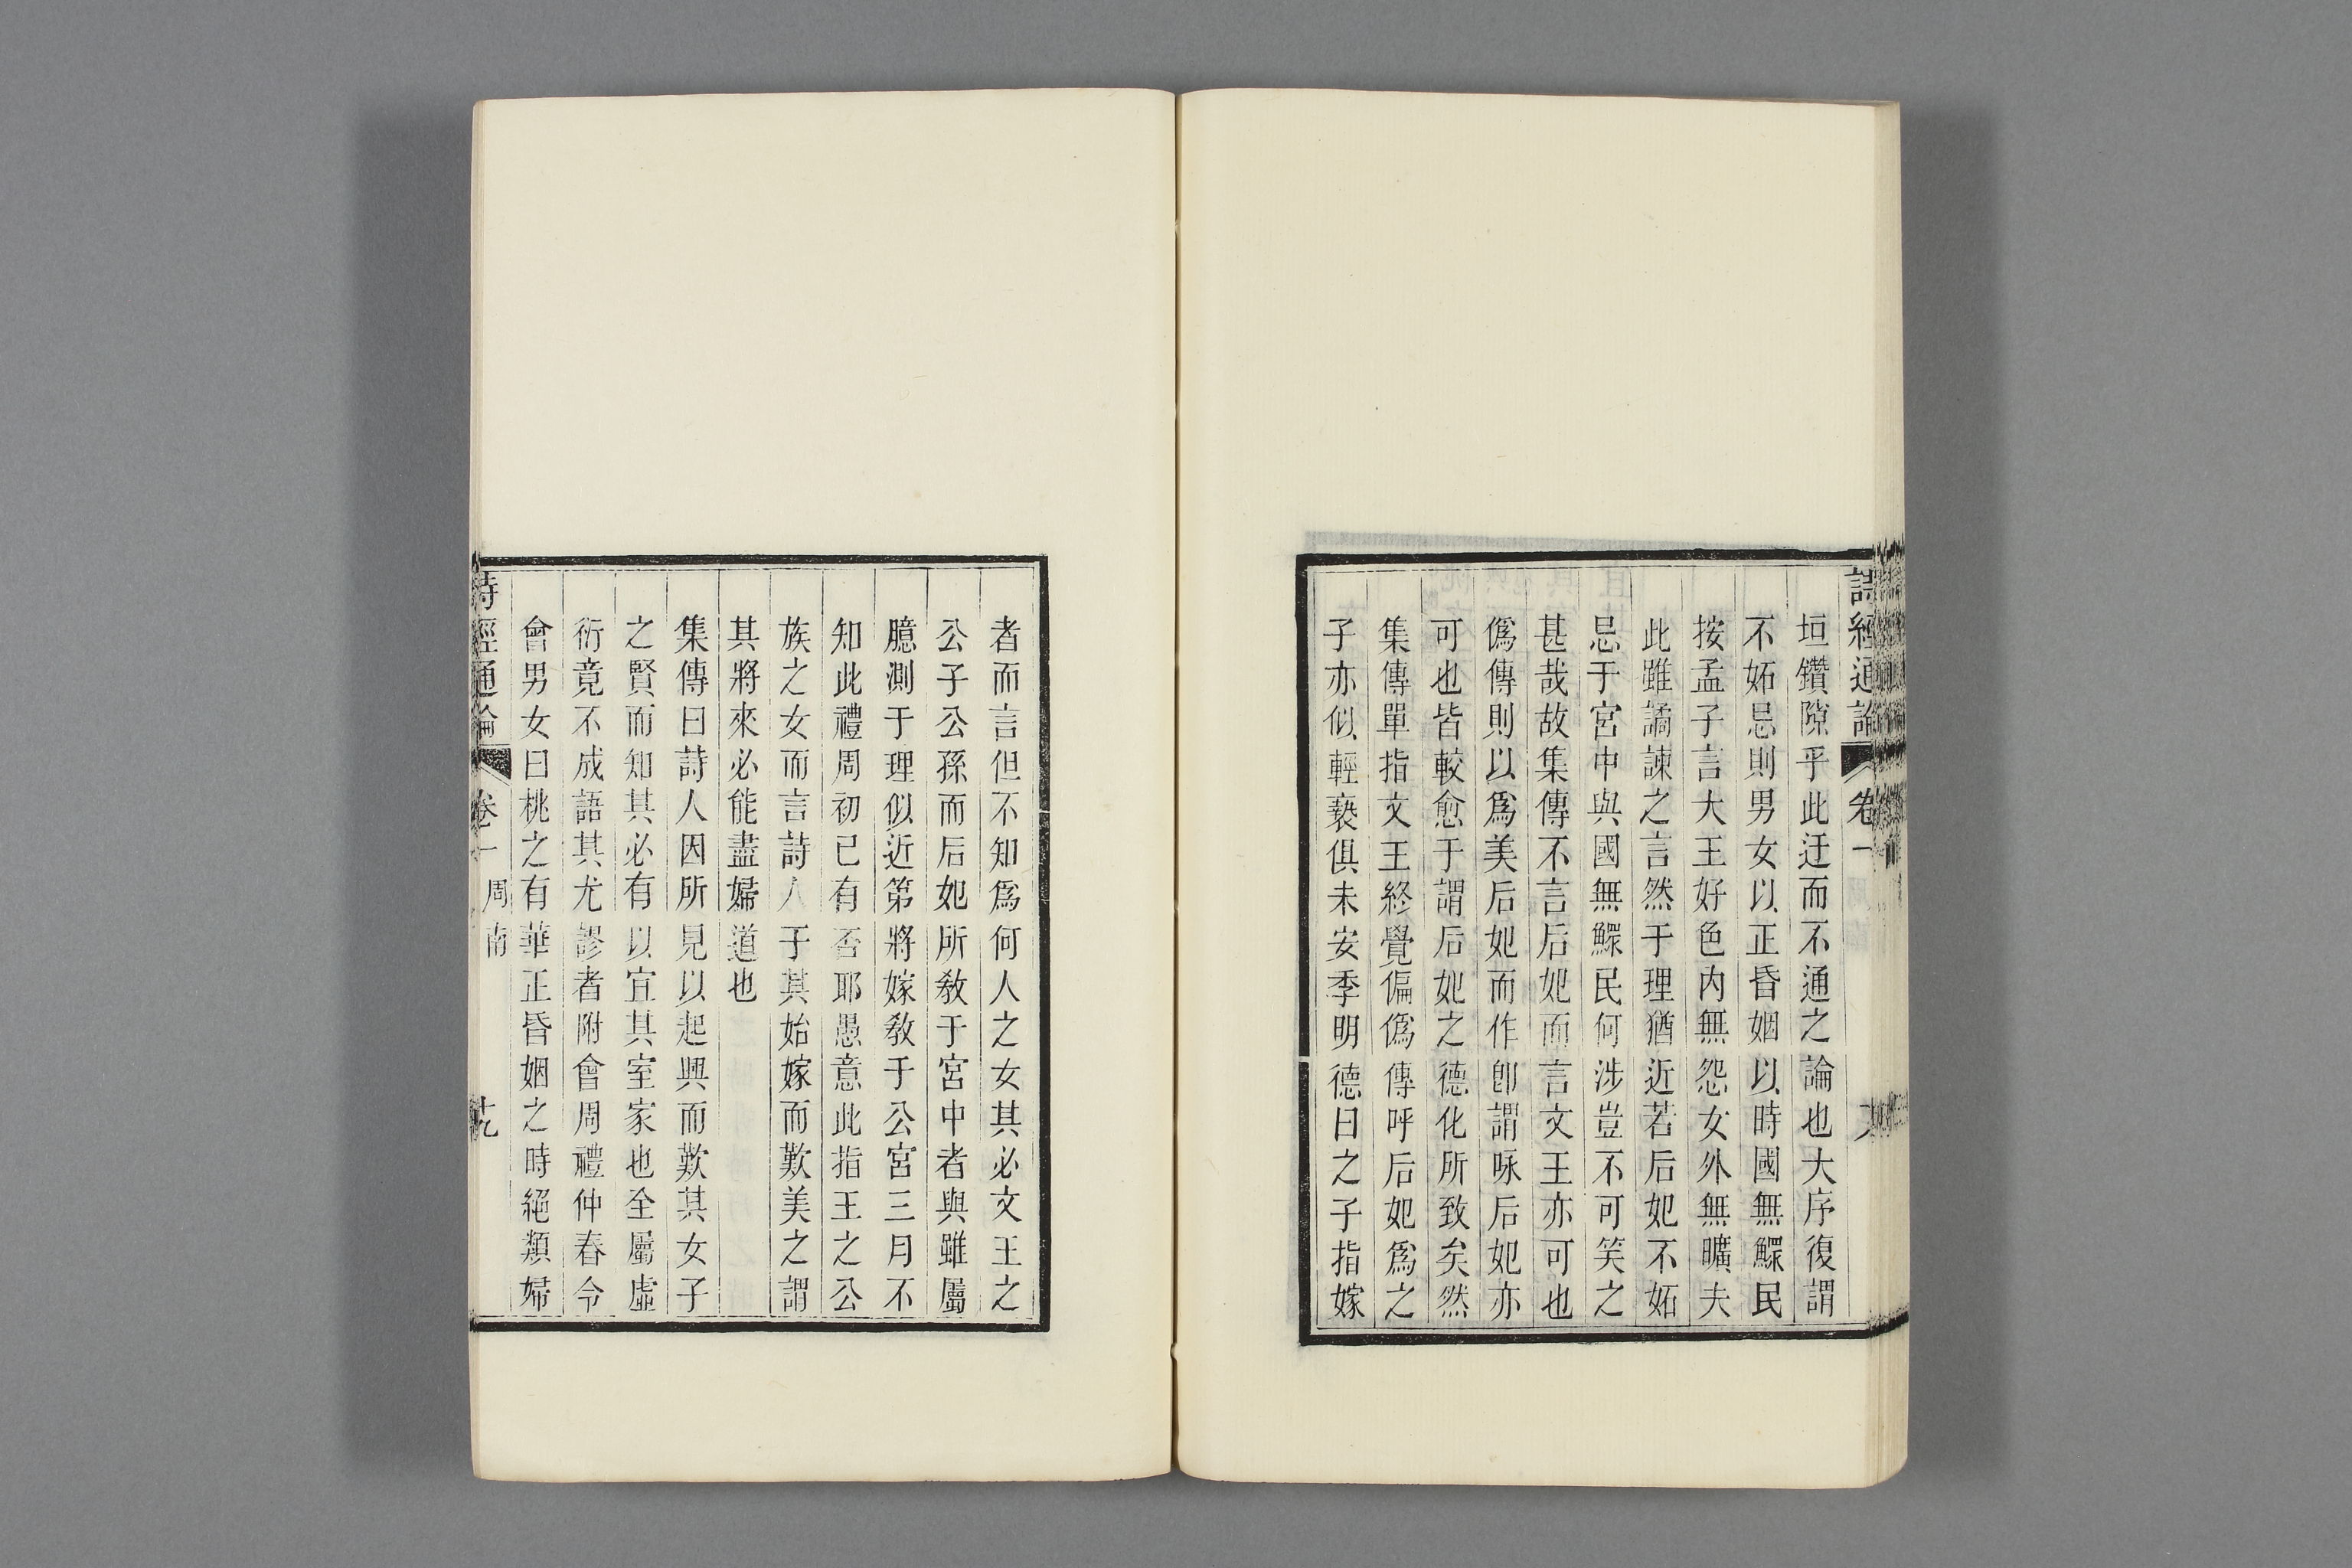 詩經通論
卷一
垣鑽隙乎此迂而不通之論也大序復謂
不妬忌則男女以正昏姻以時國無鰥民
按孟子言大王好色内無怨女外無曠夫
此雖譎諫之言然于理猶近若后妃不妬
忌于宮中與國無鰥民何涉豈不可笑之
甚哉故集傳不言后妃而言文王亦可也
僞傳則以爲美后妃而作卽謂咏后妃亦
可也皆較愈于謂后妃之德化所致矣然
集傳單指文王終覺偏僞傳呼后妃爲之
子亦似輕褻俱未安季明德曰之子指嫁
者而言但不知爲何人之女其必文王之
公子公孫而后妃所敎于宮中者與雖屬
臆測于理似近第將嫁敎于公宮三月不
知此禮周初已有否耶愚意此指王之公
族之女而言詩人于其始嫁而歎美之謂
其將來必能盡婦道也
集傳曰詩人因所見以起興而歎其女子
之賢而知其必有以宜其室家也全屬虛
衍竟不成語其尤謬者附會周禮仲春令
會男女曰桃之有華正昏姻之時絕類婦
詩經通論
卷一
周南
十九